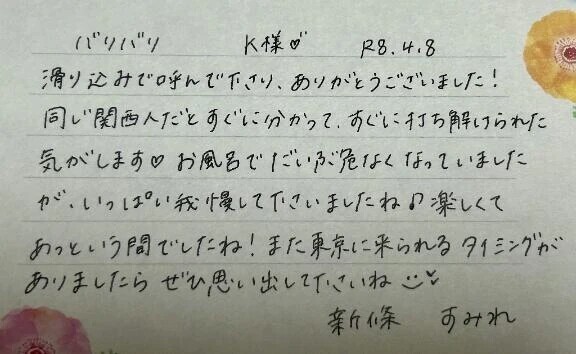 バリバリ K様♡ R8.4.8
滑り込みで呼んで下さり、ありがとうございました！
同じ関西人だとすぐに分かって、すぐに打ち解けられた
気がします♡ お風呂でだいぶ危なくなっていました
が、いっぱい我慢して下さいましたね♪ 楽しくて
あっという間でしたね！また東京に来られるタイミングが
ありましたら ぜひ思い出して下さいね
新條 すみれ